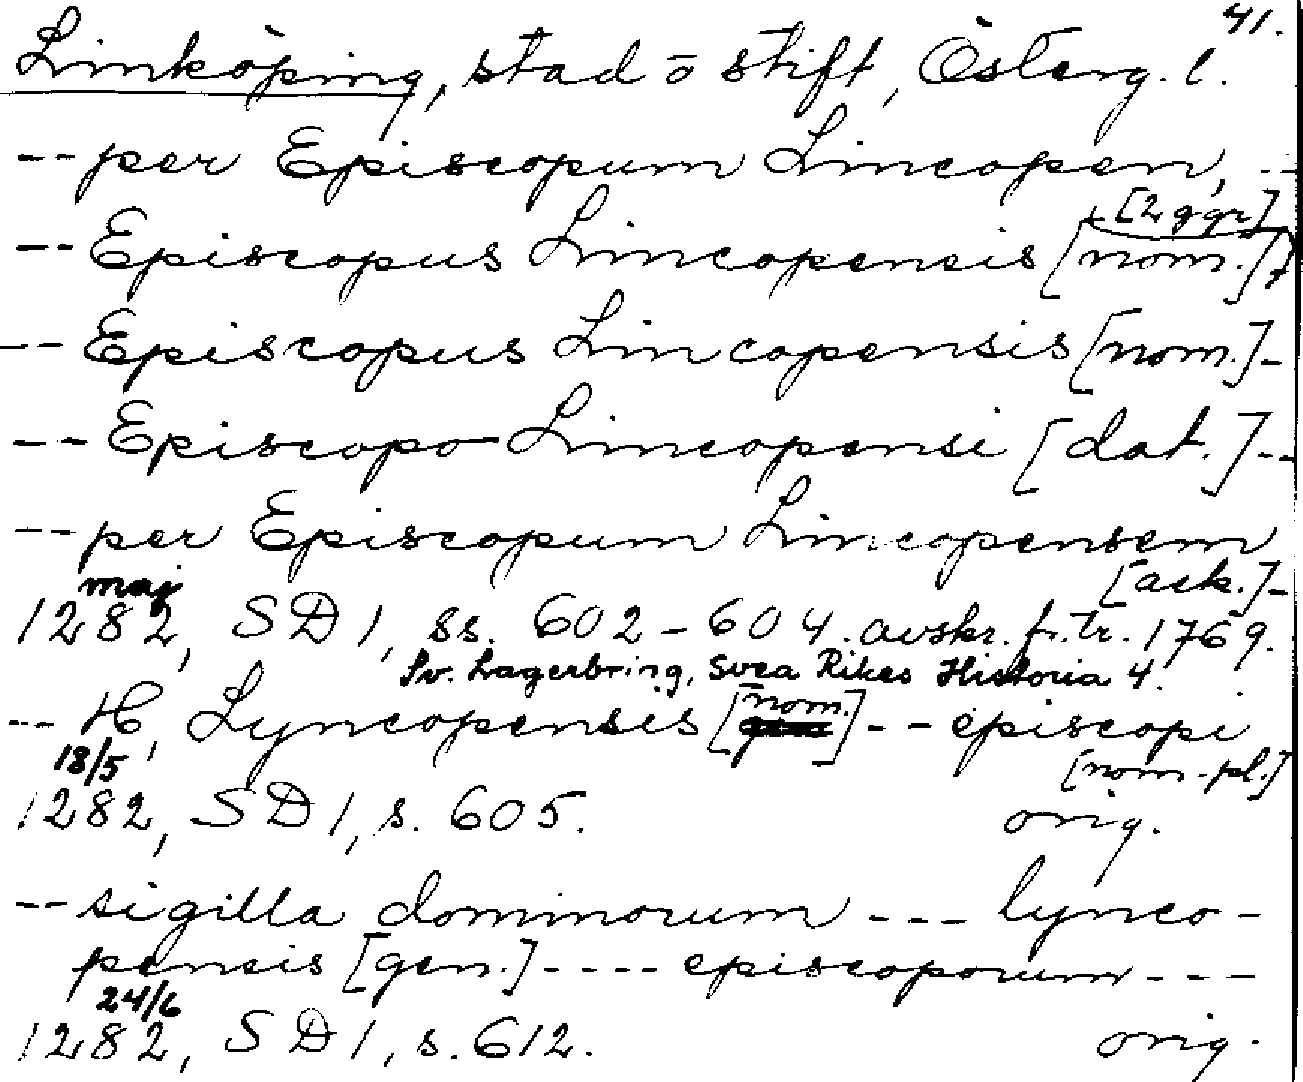 41.
Linköping, stad o stift, Österg. l.
-- per Episcopum Lincopen, --
[2 ggr]
-- Episcopus Lincopensis [nom.],
-- Episcopus Lincopensis [nom.]-
-- Episcopo Lincopensi [dat.]--
-- per Episcopum Lincopensem
maj [ack.]-
1282, SD 1, ss. 602-604. avskr. fr. tr. 1769.
Sv. Lagerbring, Svea Rikes Historia 4.
-- H, Lyncopensis [nom.] -- episcopi
18/5 [nom. pl.]
1282, SD 1, s. 605. orig.
-- sigilla dominorum --- lynco-
pensis [gen.] ---- episcoporum ---
24/6
1282, SD 1, s. 612. orig.